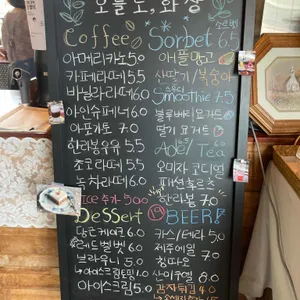 오늘도, 화창
Coffee
아메리카노 5.0
카페라떼 5.5
바닐라라떼 6.0
아인슈페너 6.0
아포가토 7.0
한라봉우유 5.5
초코라떼 5.5
녹차라떼 5.5
ICE 추가 500
DeSSert
당근케이크 6.0
레드벨벳 6.0
브라우니 5.0
↳아이스크림토핑 1.0
아이스크림 5.0
Sorbet 6.5
애플망고
산딸기/복숭아
Smoothie 7.5
블루베리요거트
딸기 요거트
Ade/Tea 6.0
오미자 코디얼
패션후르츠
한라봉 7.0
19 BEER!
카스/테라 5.0
제주에일 7.0
칭따오
산미구엘 8.0
감자튀김 4.0